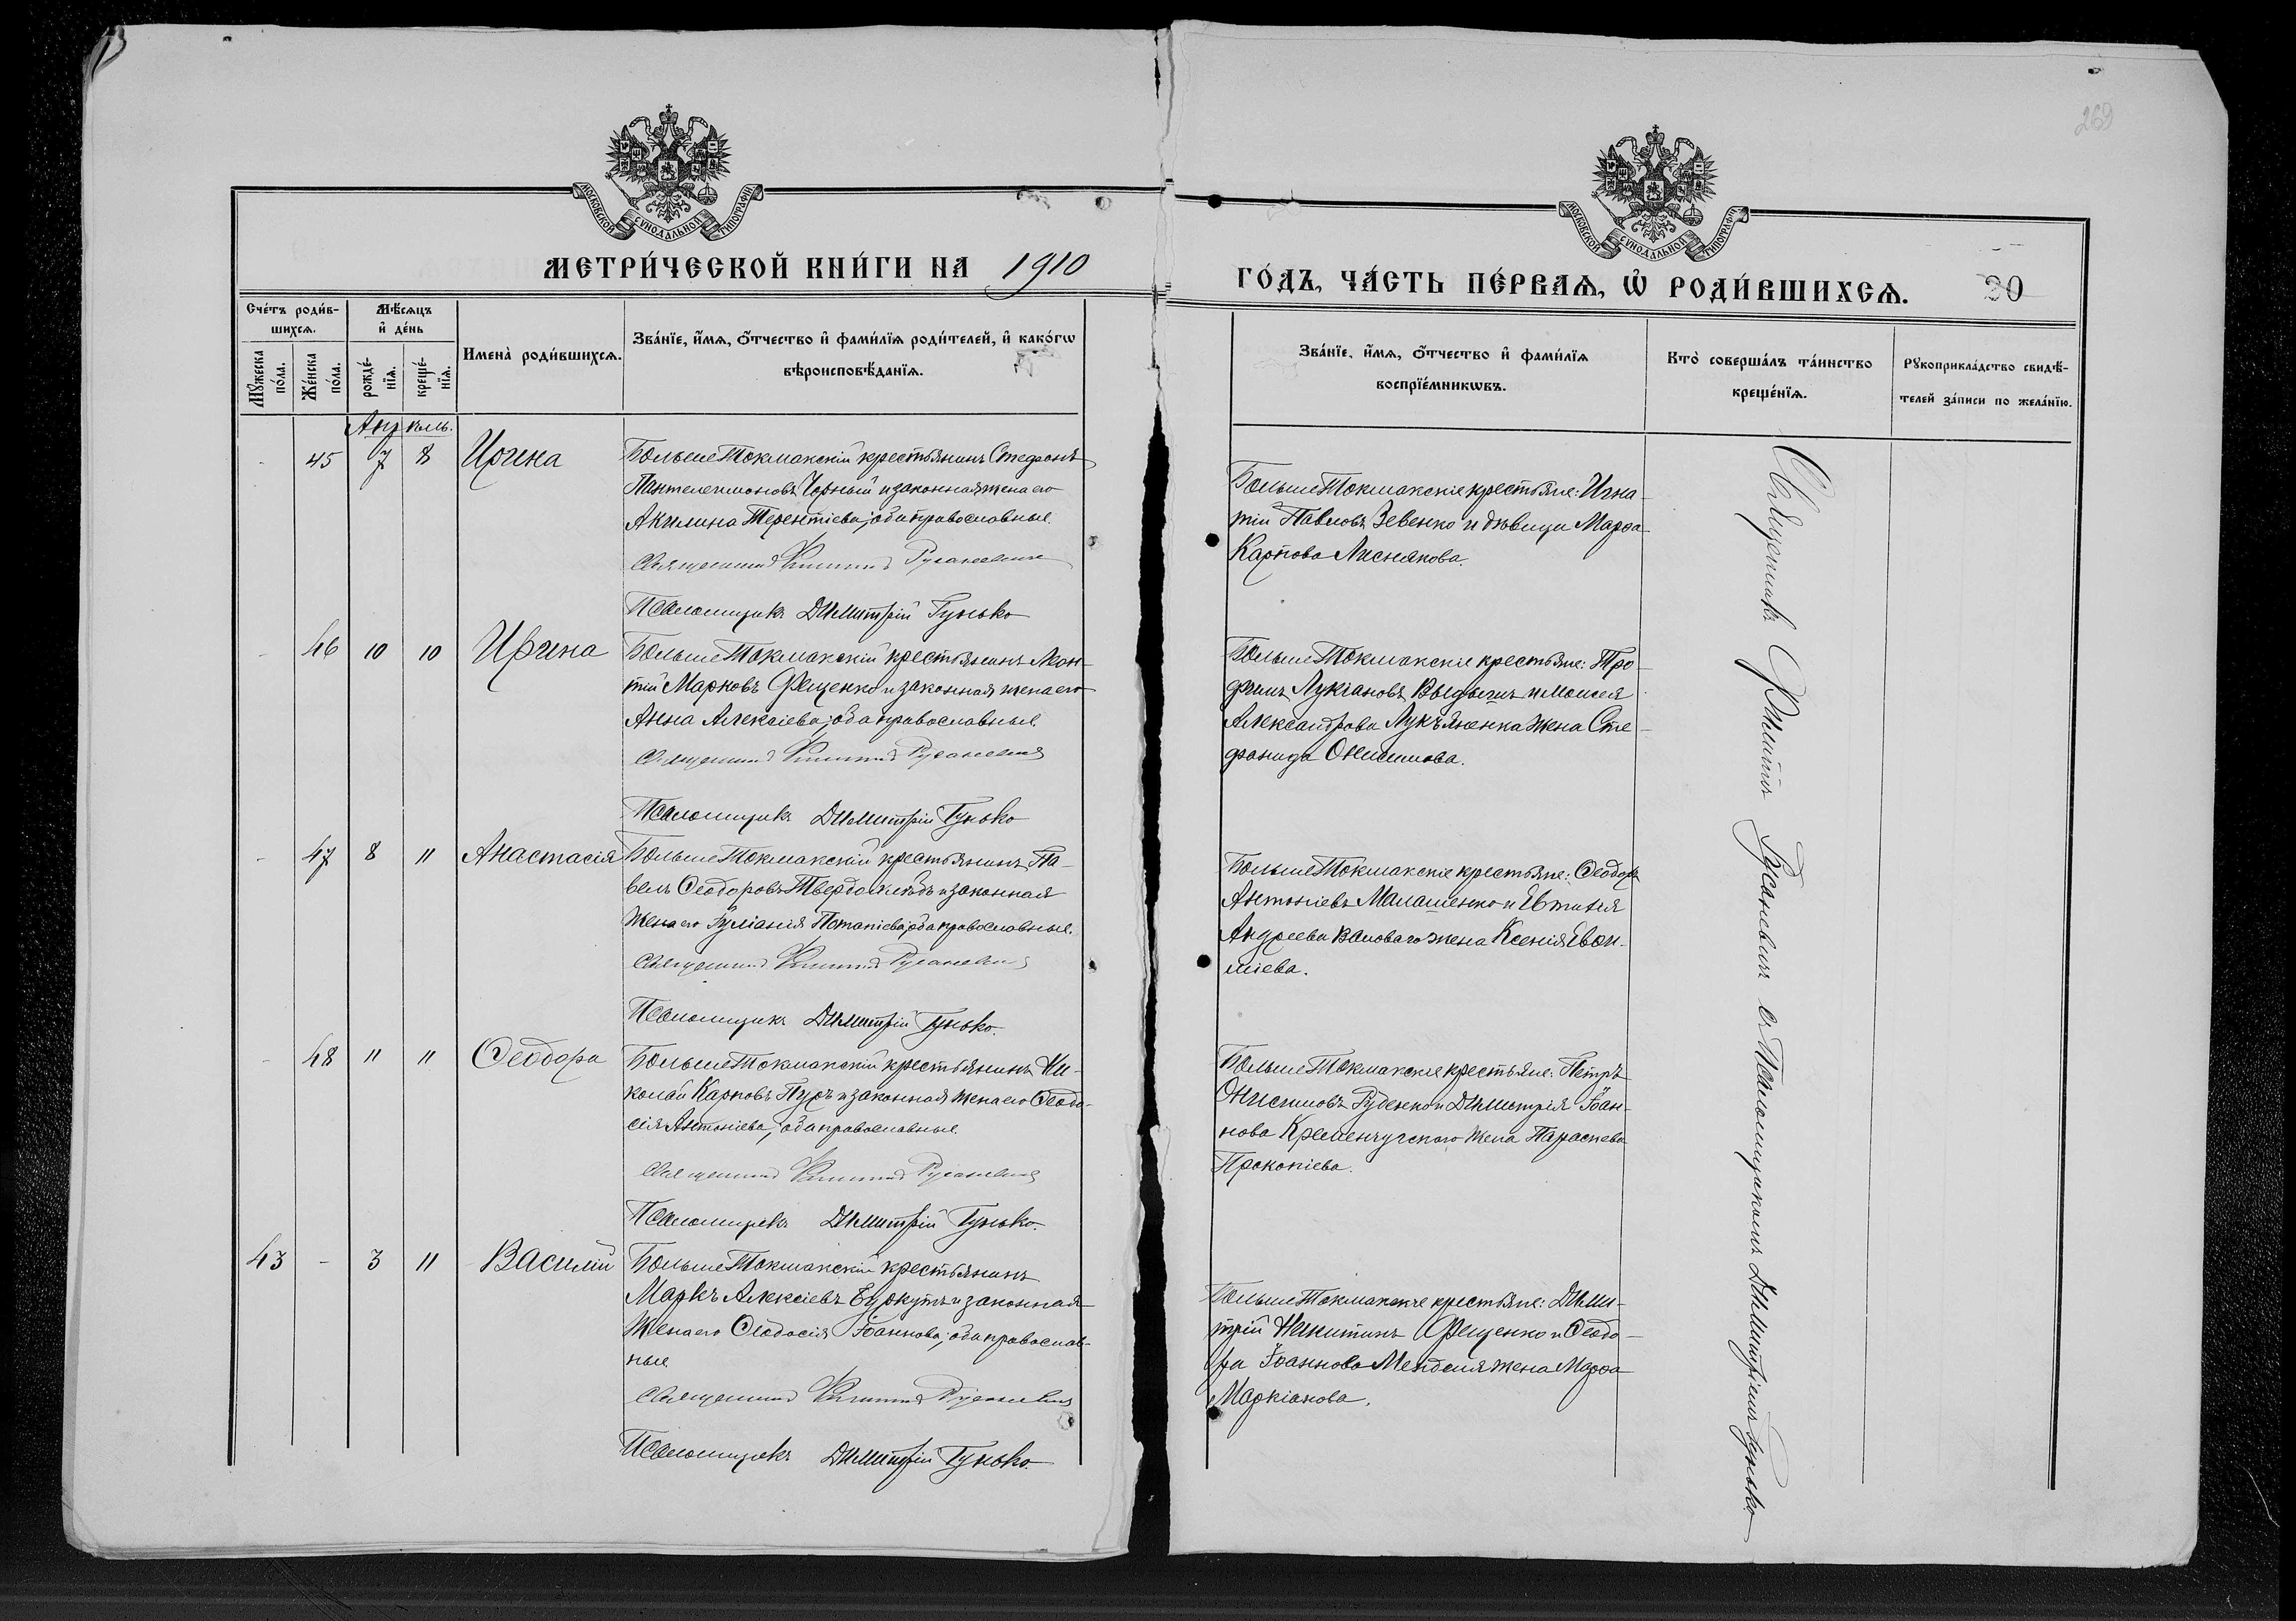 269
МОСКОВСКОЙ СѴНОДАЛЬНОЙ ТИПОГРАФІИ
МОСКОВСКОЙ СѴНОДАЛЬНОЙ ТИПОГРАФІИ
МЕТРИ́ЧЕСКОЙ КНИ́ГИ НА 1910
ГО́ДЪ, ЧА́СТЬ ПЕ́РВАѦ, Ѡ҆ РОДИ́ВШИХСѦ. 30
Сче́тъ роди́в-
шихсѧ.
Мꙋ́жеска
по́ла.
Же́нска
по́ла.
Мѣ́сѧцъ
и҆ де́нь
рожде́-
нїѧ.
креще́-
нїѧ.
Имена̀ роди́вшихсѧ.
Зва́нїе, и҆́мѧ, ѻ҆́тчество и҆ фами́лїѧ роди́телей, и҆ како́гѡ
вѣроисповѣ́данїѧ.
Зва́нїе, и҆́мѧ, ѻ҆́тчество и҆ фами́лїѧ
воспрїе́мникѡвъ.
Кто̀ соверша́лъ та́инство
креще́нїѧ.
Рꙋкоприкла́дство свидѣ́-
телей за́писи по жела́нїю.
Апрѣль.
45 7 8 Ирина
Больше Токмакскій крестьянинъ Стефанъ
Пантелеимоновъ Чорный и законная жена его
Акилина Терентіева; оба православные.
Священникъ Филиппъ Русаневичъ
Псаломщикъ Димитрій Гунько
Больше Токмакскіе крестьяне: Игна-
тій Павловъ Зевенко и дѣвица Марѳа
Карпова Лиснякова.
46 10 10 Ирина
Больше Токмакскій крестьянинъ Леон-
тій Марковъ Фещенко и законная жена его
Анна Алексіева; оба православные
Священникъ Филиппъ Русаневичъ
Псаломщикъ Димитрій Гунько
Больше Токмакскіе крестьяне: Тро-
фимъ Лукіановъ и Моисея
Александрова Лукъяненка жена Сте-
фанида Онисимова.
47 8 " Анастасія
Больше Токмакскій крестьянинъ Па-
велъ Ѳеодоровъ Твердохлѣбъ и законная
жена его Іуліанія Потапіева; оба православные.
Священникъ Филиппъ Русаневичъ
Псаломщикъ Димитрій Гунько.
Больше Токмакскіе крестьяне: Ѳеодоръ
Антоніевъ Малашенко и Евтихія
Андреева жена Ксенія Евои-
міева.
48 " " Ѳеодора
Больше Токмакскій крестьянинъ Ни-
колай Карповъ Пухъ и законная жена его Ѳеодо-
сія Антоніева; оба православные.
Священникъ Филиппъ Русаневичъ
Псаломщикъ Димитрій Гунько.
Больше Токмакскіе крестьяне: Петръ
Онисимовъ Руденко и Димитрія Іоан-
нова Кременчугскаго жена Параскева
Прокопіева.
43 - 3 " Василій
Больше Токмакскій крестьянинъ
Маркъ Алексіевъ Буркутъ и законная
жена его Ѳеодосія Іоаннова; оба православ-
ные
Священникъ Филиппъ Русаневичъ
Псаломщикъ Димитрій Гунько.
Больше Токмакскіе крестьяне: Дими-
трій Никитинъ Фещенко и Ѳеодо-
ра Іоаннова жена Марѳа
Маркіанова.
Священникъ Филиппъ Русаневичъ съ Псаломщикомъ Димитріемъ Гунько